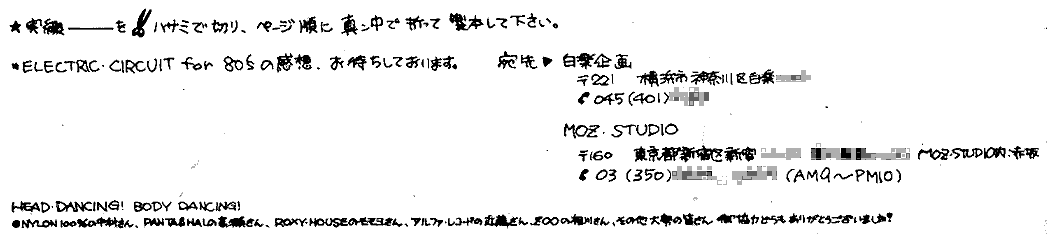 ★実線———を✂ハサミで切り、ページ順に真ン中で折って製本して下さい。
*ELECTRIC・CIRCUIT for 80'Sの感想、お待ちしております。 宛先▶白楽企画
〒221 横浜市神奈川区白楽
☎045(401)
MOZ・STUDIO
〒160 東京都新宿区新宿 MOZ・STUDIO内・赤坂
☎03(350) (AM9〜PM10)
HEAD・DANCING! BODY DANCING!
●NYLON100%の中村さん、PANTA&HALの さん、ROXY・HOUSEのモモヨさん、アルファ・レコードの近藤さん、ZOOの相川さん、その他大勢の皆さん御協力どうもありがとうございました!